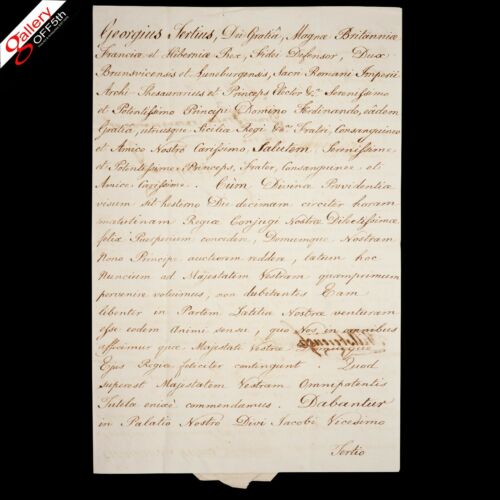 gallery
OFF5th
Georgius Tertius, Dei Gratiâ, Magnæ Britanniæ
Franciæ et Hiberniæ Rex, Fidei Defensor, Dux
Brunsvicensis et Luneburgensis, Sacri Romani Imperii
Archi Thesaurarius et Princeps Elector &c. Serenissimo
et Potentissimo Principi Domino Ferdinando, eâdem
Gratiâ, utriusque Siciliæ Regi &c. Fratri, Consanguineo
et Amico Nostro Carissimo, Salutem. Serenissime
et Potentissime Princeps, Frater, Consanguinee et
Amice Carissime. Cùm Divinæ Providentiæ
visum sit hesterno Die decimam circiter horam
matutinam Regiæ Conjugi Nostræ Dilectissimæ
felix Puerperium concedere, Domumque Nostram
Nono Principe auctiorem reddere, lætum hoc
Nuncium ad Majestatem Vestram quamprimum
pervenire voluimus, non dubitantes Eam
libenter in Partem Lætitiæ Nostræ venturam
esse eodem Animi sensu, quo Nos in omnibus
afficimur quæ Majestati Vestræ
Ejus Regiæ feliciter contingunt. Quod
superest Majestatem Vestram Omnipotentis
Tutelæ enixè commendamus. Dabantur
in Palatio Nostro Divi Jacobi Vicesimo
Tertio